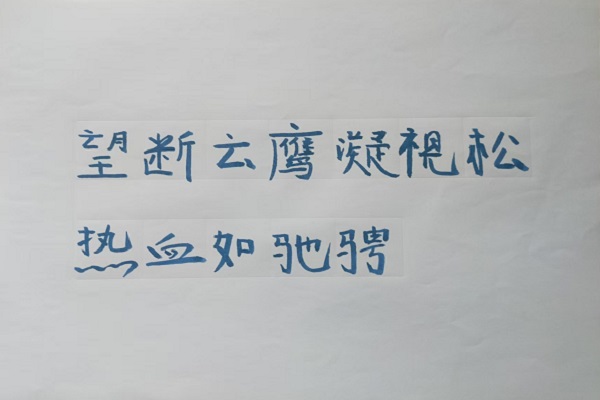 望断云鹰凝視松
热血如驰骋